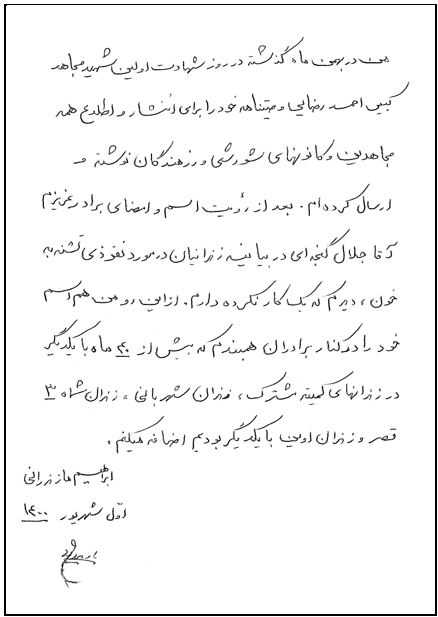 من در بهمن ماه گذشته در روز شهادت اولین شهید مجاهد
کبیر احمد رضایی وصیتنامه خود را برای انتشار و اطلاع همه
مجاهدین و کانونهای شورشی و رزمندگان نوشته و
ارسال کرده ام. بعد از رؤیت اسم و امضای برادر عزیزم
آقا جلال گنجه ای در بیانیه زندانیان در مورد نفوذی تشنه به
خون، دیدم که یک کار نکرده دارم. از این رو من هم اسم
خود را در کنار برادران همبندم که بیش از ۴۰ ماه با یکدیگر
در زندانهای کمیته مشترک، زندان شهربانی، زندان شماره ۳
قصر و زندان اوین با یکدیگر بودیم اضافه میکنم.
ابراهیم مازندرانی
اول شهریور ۱۴۰۰